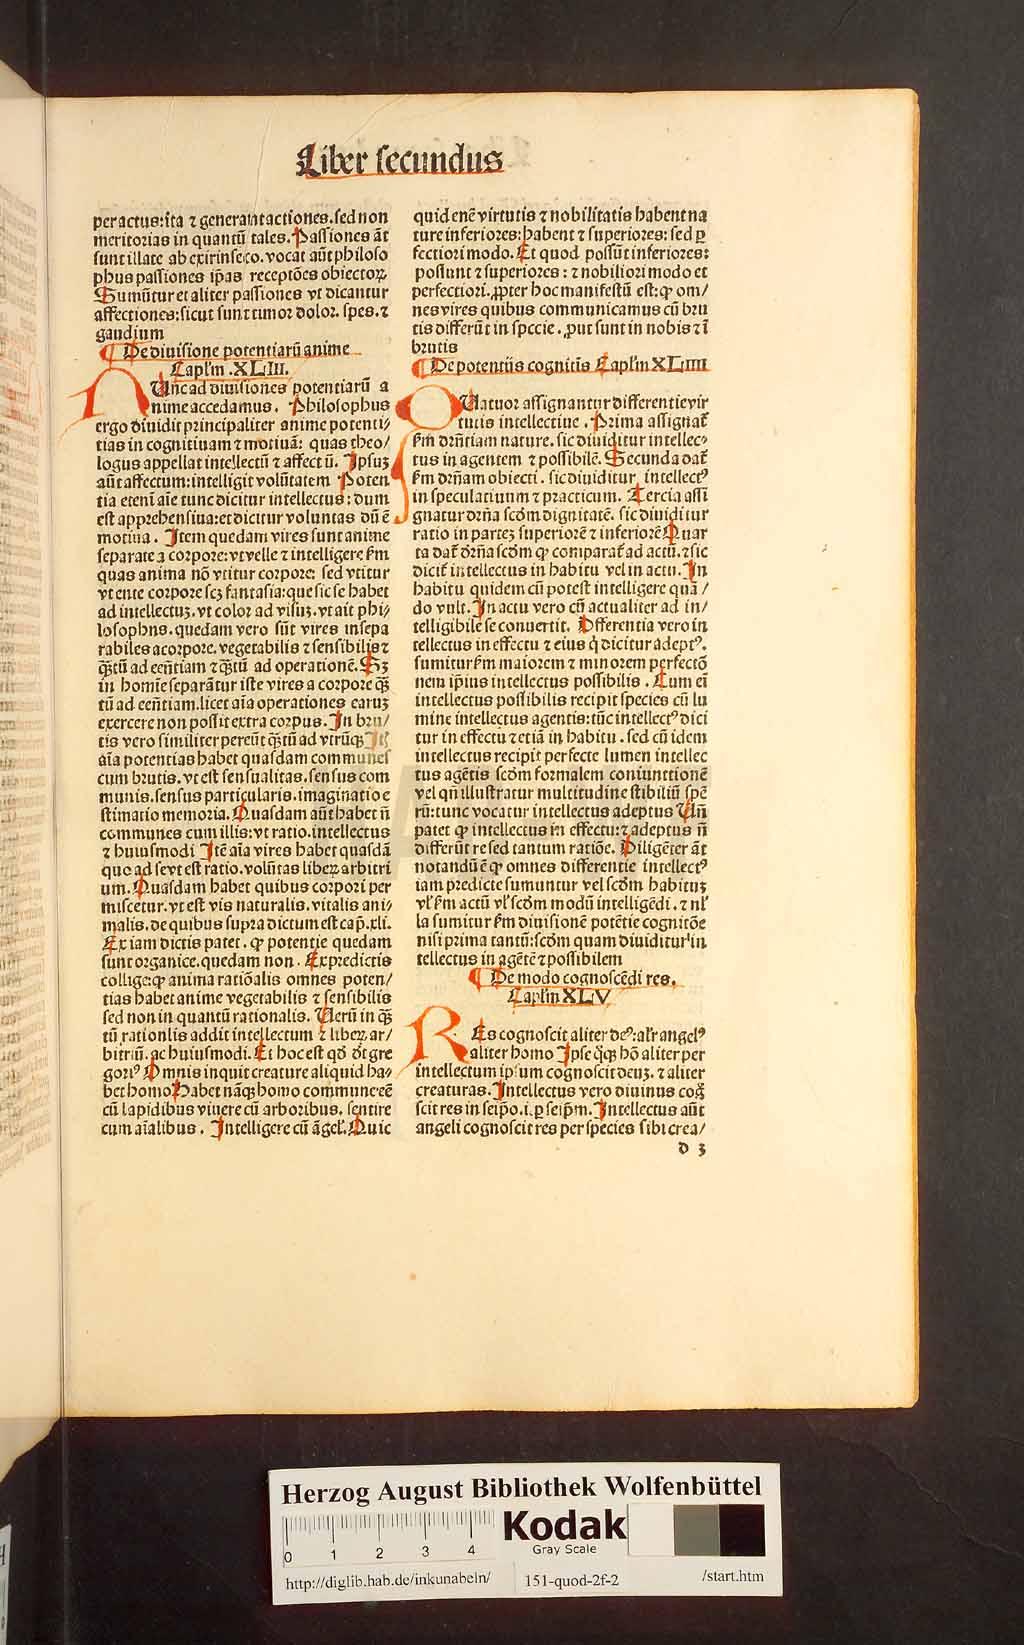 Liber secundus
per actus: ita ⁊ generant actiones. sed non
meritorias in quantū tales. Passiones āt
sunt illate ab extrinseco. vocat aūt philoso
phus passiones ip̄as receptōes obiectoꝝ
Sumūtur et aliter passiones vt dicantur
affectiones: sicut sunt timor dolor. spes. ⁊
gaudium
¶ De diuisione potentiarū anime
Caplm̄ .XLIII.
NUnc ad diuisiones potentiarū a
nime accedamus. Philosophus
ergo diuidit principaliter anime potenti/
tias in cognitiuam ⁊ motiuā: quas theo/
logus appellat intellectū ⁊ affectū. Ipsuꝫ
aūt affectum: intelligit volūtatem Poten
tia etenī aīe tunc dicitur intellectus: dum
est apprehensiua: et dicitur voluntas dū ē
motiua. Item quedam vires sunt anime
separate a corpore: vt velle ⁊ intelligere ẜm
quas anima nō vtitur corpore: sed vtitur
vt ente corpore scꝫ fantasia: que sic se habet
ad intellectuꝫ. vt color ad visuꝫ. vt ait phi/
losophns. quedam vero sūt vires insepa
rabiles a corpore. vegetabilis ⁊ sensibilis ⁊
q̄ꝫtū ad eēntiam ⁊ q̄ꝫtū ad operationē. Sꝫ
in homīe separātur iste vires a corpore q̄ꝫ
tū ad eēntiam. licet aīa operationes earuꝫ
exercere non possit extra corpus. In bru/
tis vero similiter pereūt q̄ꝫtū ad vtrūqꝫ Itꝫ
aīa potentias habet quasdam communes
cum brutis. vt est sensualitas. sensus com
munis. sensus particularis. imaginatio e
stimatio memoria. Quasdam aūt habet n̄
communes cum illis: vt ratio. intellectus
⁊ huiusmodi Itē aīa vires habet quasdā
quo ad se vt est ratio. volūtas liberꝫ arbitri
um. Quasdam habet quibus corpori per
miscetur. vt est vis naturalis. vitalis ani/
malis. de quibus supra dictum est cap̄. xli.
Ex iam dictis patet. ꝙ potentie quedam
sunt organice. quedam non. Ex predictis
collige: ꝙ anima ratiōalis omnes poten/
tias habet anime vegetabilis ⁊ sensibilis
sed non in quantū rationalis. Uerū in q̄ꝫ
tū rationlis addit intellectum ⁊ liberꝫ ar/
bitriū. ac huiusmodi. Et hoc est qd̄ dt̄ gre
goriꝰ Omnis inquit creature aliquid ha/
bet homo Habet nāqꝫ homo commune eē
cū lapidibus viuere cū arboribus. sentire
cum aīalibus. Intelligere cū āgeł. Quic
quid enē virtutis ⁊ nobilitatis habent na
ture inferiores: habent ⁊ superiores: sed ꝑ
fectiori modo. Et quod possūt inferiores:
possunt ⁊ superiores: ⁊ nobiliori modo et
perfectiori. ꝓpter hoc manifestū est: ꝙ om/
nes vires quibus communicamus cū bru
tis differūt in specie. ꝓut sunt in nobis ⁊ ī
brutis
¶ De potentijs cognitīs Caplm̄ XLIIII
QUatuor assignantur differentie vir
tutis intellectiue. Prima assignat̄
ẜm drn̄tiam nature. sic diuiditur intellec/
tus in agentem ⁊ possibilē. Secunda dat̄
ẜm drn̄am obiecti. sic diuiditur intellectꝰ
in speculatiuum ⁊ practicum. Tercia assi
gnatur drn̄a scd̄m dignitatē. sic diuiditur
ratio in parteꝫ superiorē ⁊ inferiorē Quar
ta dat̄ drn̄a scd̄m ꝙ comparat̄ ad actū. ⁊ sic
dicit̄ intellectus in habitu vel in actu. In
habitu quidem cū potest intelligere quā/
do vult. In actu vero cū actualiter ad in/
telligibile se conuertit. Differentia vero in
tellectus in effectu ⁊ eius q̇ dicitur adeptꝰ.
sumitur ẜm maiorem ⁊ minorem perfectō
nem ip̄ius intellectus possibilis. Cum eī
intellectus possibilis recipit species cū lu
mine intellectus agentis: tūc intellectꝰ dici
tur in effectu ⁊ etiā in habitu. sed cū idem
intellectus recipit perfecte lumen intellec
tus agētis scd̄m formalem coniunctionē
vel qn̄ illustratur multitudine stibiliū spē
rū: tunc vocatur intellectus adeptus Un̄
patet ꝙ intellectus in effectu: ⁊ adeptus n̄
differūt re sed tantum ratiōe. Diligēter āt
notandū ē ꝙ omnes differentie intellectꝰ
iam predicte sumuntur vel scd̄m habituꝫ
vł ẜm actū vł scd̄m modū intelligēdi. ⁊ nł
la sumitur ẜm diuisionē potētie cognitōe
nisi prima tantū: scd̄m quam diuiditur in
tellectus in agētē ⁊ possibilem
¶ De modo cognoscēdi res.
Caplm̄ XLV
REs cognoscit aliter deꝰ: alr̄ angelꝰ
aliter homo Ipse q̇qꝫ hō aliter per
intellectum ipsum cognoscit deuꝫ. ⁊ aliter
creaturas. Intellectus vero diuinus cog̅
scit res in seip̄o. i. ꝑ seip̄m. Intellectus aūt
angeli cognoscit res per species sibi crea/
d 3
Herzog August Bibliothek Wolfenbüttel
0 1 2 3 4
Kodak
Gray Scale
http://diglib.hab.de/inkunabeln/ 151-quod-2f-2 /start.htm